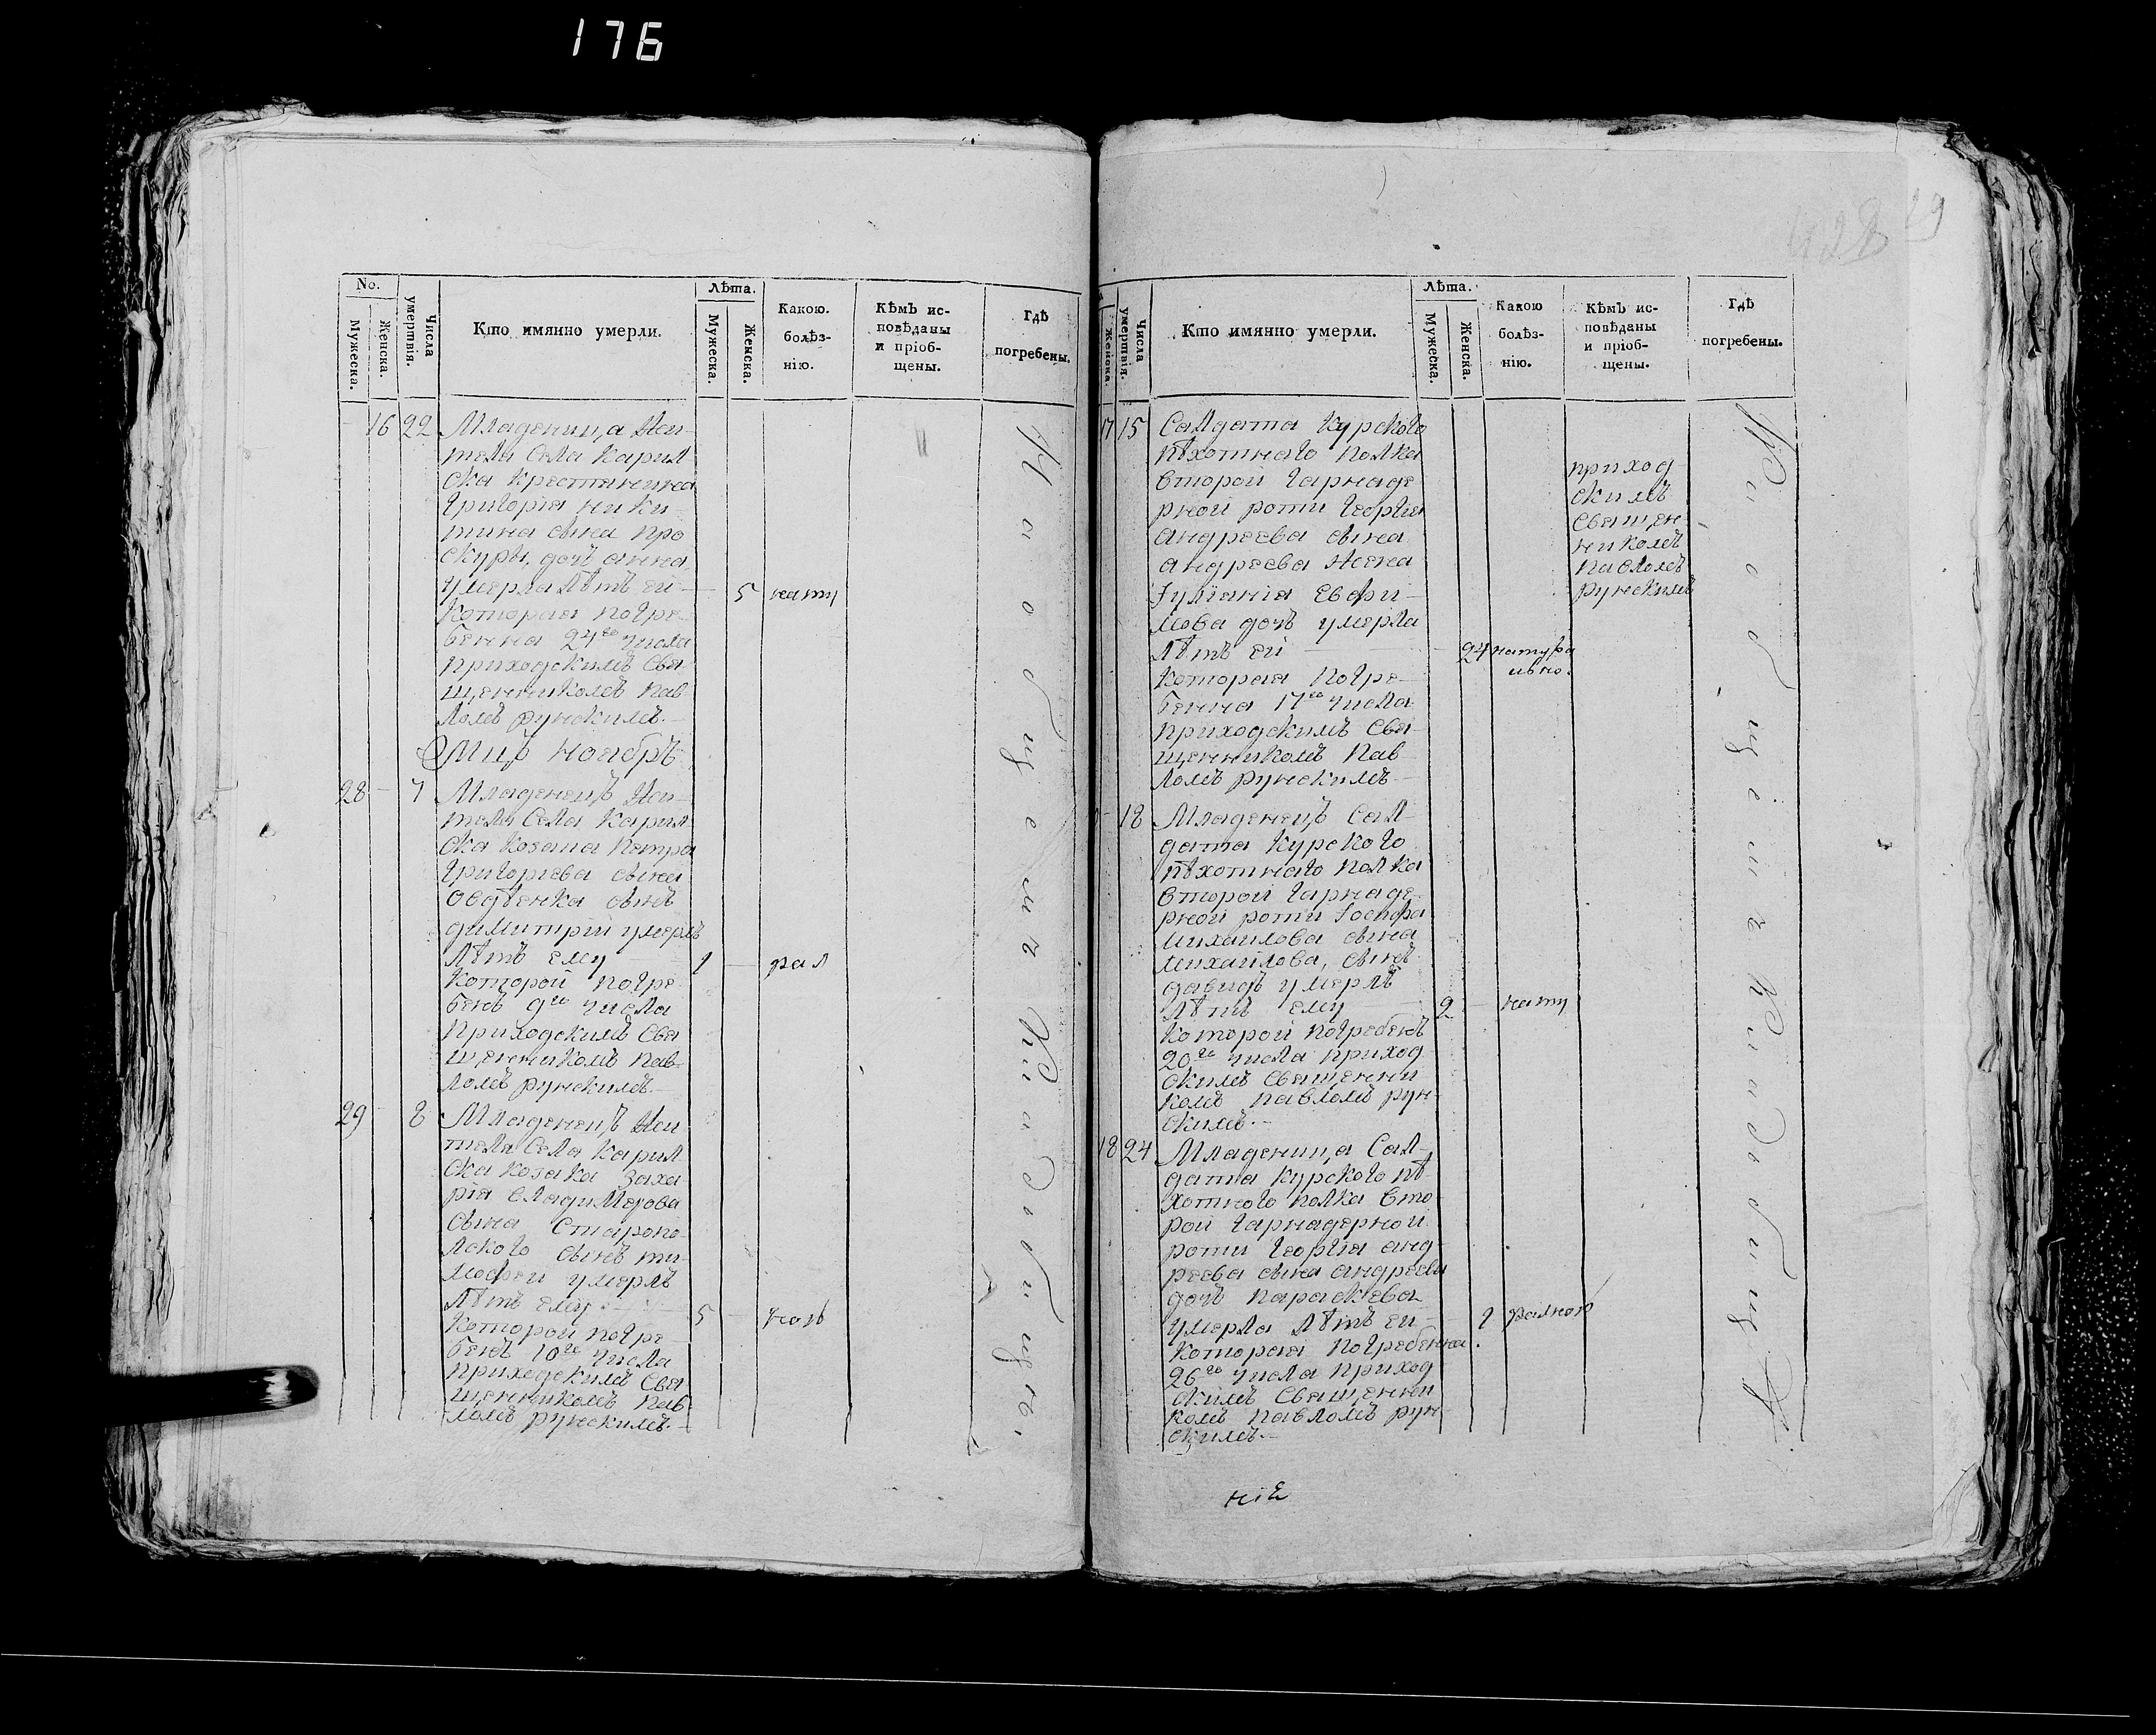 176
No.
Мужеска.
Женска.
Числа умертвія.
Кто имянно умерли.
Лѣта.
Мужеска.
Женска.
Какою. болѣз- нію.
Кѣмъ ис- повѣданы и пріоб- щены.
Гдѣ погребены.
16 22 Младеница Жи-
теля Села Карил
ска крестянина
Григорія Ники-
тина сына Про
скуры, дочъ анна
умерла Лѣтъ ей 5 нату
Которая погре-
бенна 24го числа
приходскимъ Свя-
щенникомъ Пав
ломъ Рунскимъ.
Мцъ Ноябръ
28 7 Младенецъ Жи-
теля Села Карил-
ска козака Петра
Григорева сына
Овдѣенка сынъ
димитрій умерлъ
Лѣтъ ему 1 рал
Которой погре-
бенъ 9го числа
Приходскимъ Свя
щенникомъ Пав-
ломъ Рунскимъ.
29 8 Младенецъ Жи
теля Села Карил
ска козака Заха
рія владимерова
сына Старопо-
лского сынъ ти-
мофей умерлъ
Лѣтъ ему 5
Которой погре-
бенъ 10го числа
приходскимъ Свя
щенникомъ Пав-
ломъ Рунскимъ.
На общемъ кладбищѣ
428 29
Женска.
Числа умертвія.
Кто имянно умерли.
Лѣта.
Мужеска.
Женска.
Какою болѣз- нію.
Кѣмъ ис- повѣданы и пріоб- щены.
Гдѣ погребены.
17 15 Салдата Курского
пѣхотного полка
второй гарнаде
рной роти Георгія
андреева сына
андреева жена
Іуліанія Евфи-
мова дочъ умерла
Лѣтъ ей 24 натура льно.
Которая погре-
бенна 17го числа
приходскимъ Свя-
щенникомъ Пав-
ломъ Рунскимъ
приход
скимъ
Священ
никомъ
Павломъ
Рунскимъ
18 Младенецъ Сал-
дата Курского
пѣхотного полка
второй гарнаде-
рной роти Іосифа
михаилова сына
михаилова, сынъ
давидъ умерлъ
Лѣтъ ему 2 нату
Которой погребенъ
20го числа приход
скимъ Священни
комъ Павломъ Рун-
скимъ.
18 24 Младеница Сал-
дата Курского пѣ
хотного полка вто-
рой гарнадерной
роти Георгія анд-
реева сына андреева
дочъ параскева
умерла Лѣтъ ей 1
Которая погребенна
26го числа приход
скимъ Священни
комъ Павломъ Рун-
скимъ.
ніе